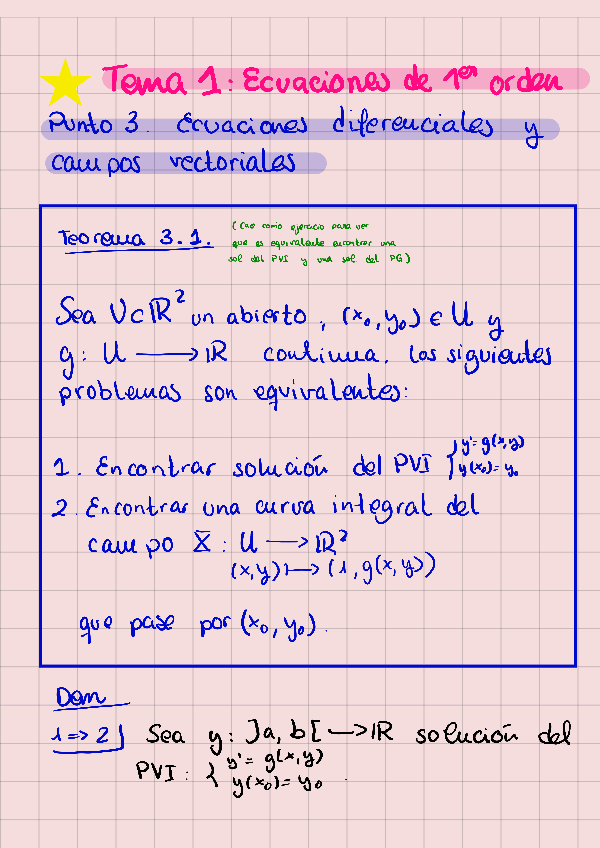 Tema 1: Ecuaciones de 1er orden
Punto 3. Ecuaciones diferenciales y
campos vectoriales
Teorema 3.1.
(Cae como ejercicio para ver
que es equivalente encontrar una
sol del PVI y una sol del PG)
Sea U⊂ℝ² un abierto, (x₀,y₀) ∈ U y
g: U ⟶ ℝ continua. Los siguientes
problemas son equivalentes:
1. Encontrar solución del PVI { y'= g(x,y)
y(x₀)= y₀
2. Encontrar una curva integral del
campo X: U ⟶ ℝ²
(x,y) ⟼ (1, g(x,y))
que pase por (x₀, y₀).
Dem
1 => 2) Sea y: ]a, b[ ⟶ ℝ solución del
PVI: { y'= g(x,y)
y(x₀)= y₀ .